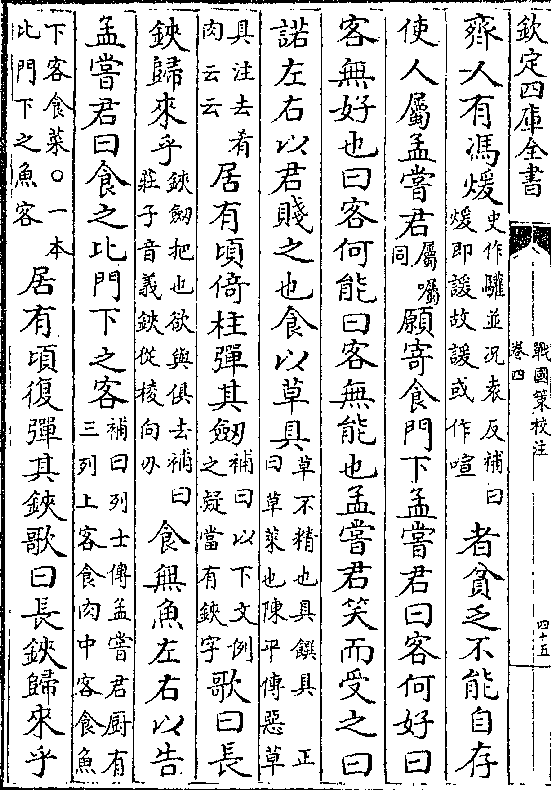 欽定四庫全書
戰國策校注
卷四
四十五
齊人有馮煖史作驩並況表反補曰煖即諼故諼或作喧者貧乏不能自存
使人屬孟嘗君屬囑同願寄食門下孟嘗君曰客何好曰
客無好也曰客何能曰客無能也孟嘗君笑而受之曰
諾左右以君賤之也食以草具草不精也具饌具正曰草菜也陳平傳惡草
具注去肴肉云云居有頃倚柱彈其劒補曰以下文例之疑當有鋏字歌曰長
鋏歸來乎鋏劒把也欲與俱去補曰莊子音義鋏從稜向刃食無魚左右以告
孟嘗君曰食之比門下之客補曰列士傳孟嘗君厨有三列上客食肉中客食魚
下客食菜○一本此門下之魚客居有頃復彈其鋏歌曰長鋏歸來乎